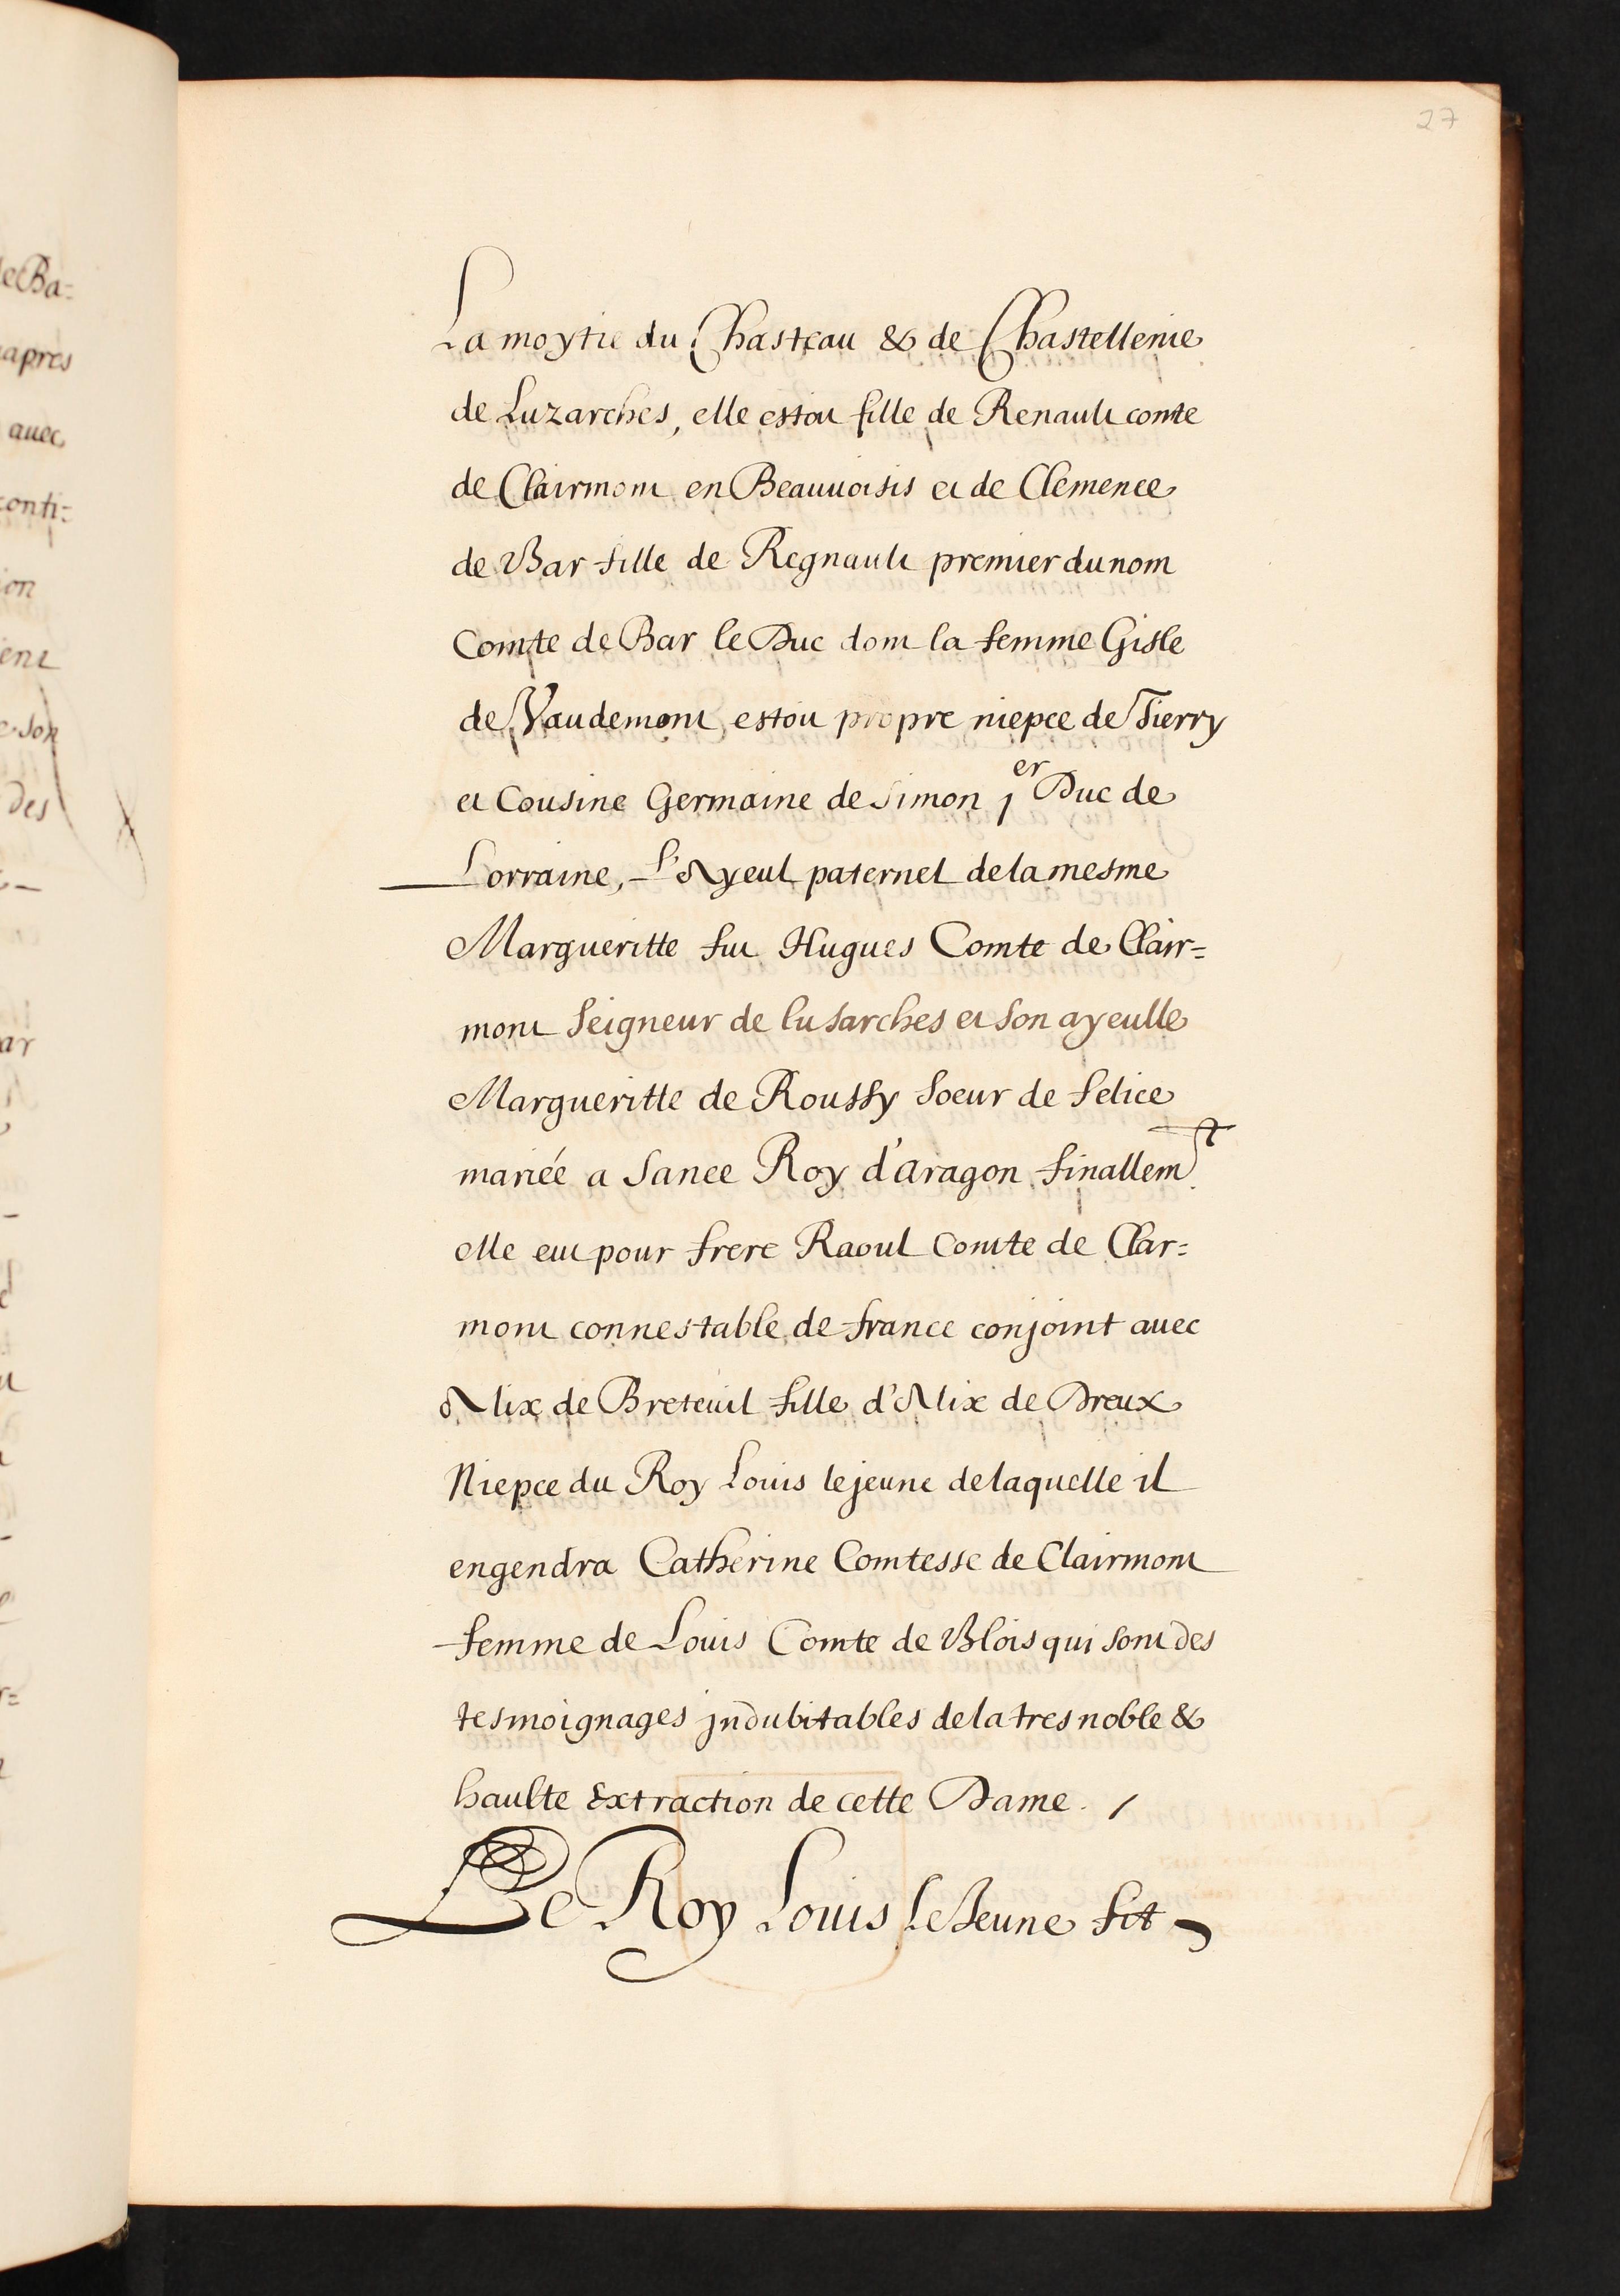 27
La moytie du Chasteau & de Chastellenie
de Luzarches, elle estoit fille de Renault comte
de Clairmont en Beauuoisis et de Clemence
de Bar fille de Regnault premier du nom
Comte de Bar le Duc dont la femme Gisle
de Vaudemont estoit propre niepce de Tierry
et Cousine Germaine de Simon 1er Duc de
Lorraine, L'Ayeul paternel de la mesme
Margueritte fut Hugues Comte de Clair=
mont Seigneur de lusarches et son ayeulle
Margueritte de Roussy soeur de felice
mariée a Sance Roy d'aragon finallemt
elle eut pour frere Raoul Comte de Clar=
mont connestable de france conjoint auec
Alix de Breteuil fille d'Alix de Dreux
Niepce du Roy Louis le jeune de laquelle il
engendra Catherine Comtesse de Clairmont
femme de Louis Comte de Blois qui sont des
tesmoignages jndubitables de la tres noble &
haulte Extraction de cette Dame. /
Le Roy Louis le Jeune fit
eBa=
apres
auec
conti=
ion
ent
son
des